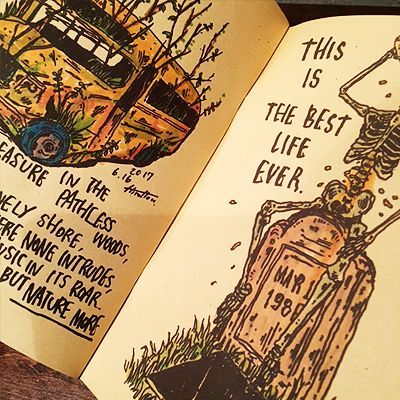 2017
6.16
EASURE IN THE
PATHLESS
WOODS,
NELY SHORE,
ERE NONE INTRUDES,
USIC IN ITS ROAR
BUT NATURE MORE
THIS
IS
THE BEST
LIFE
EVER.
MAY
198